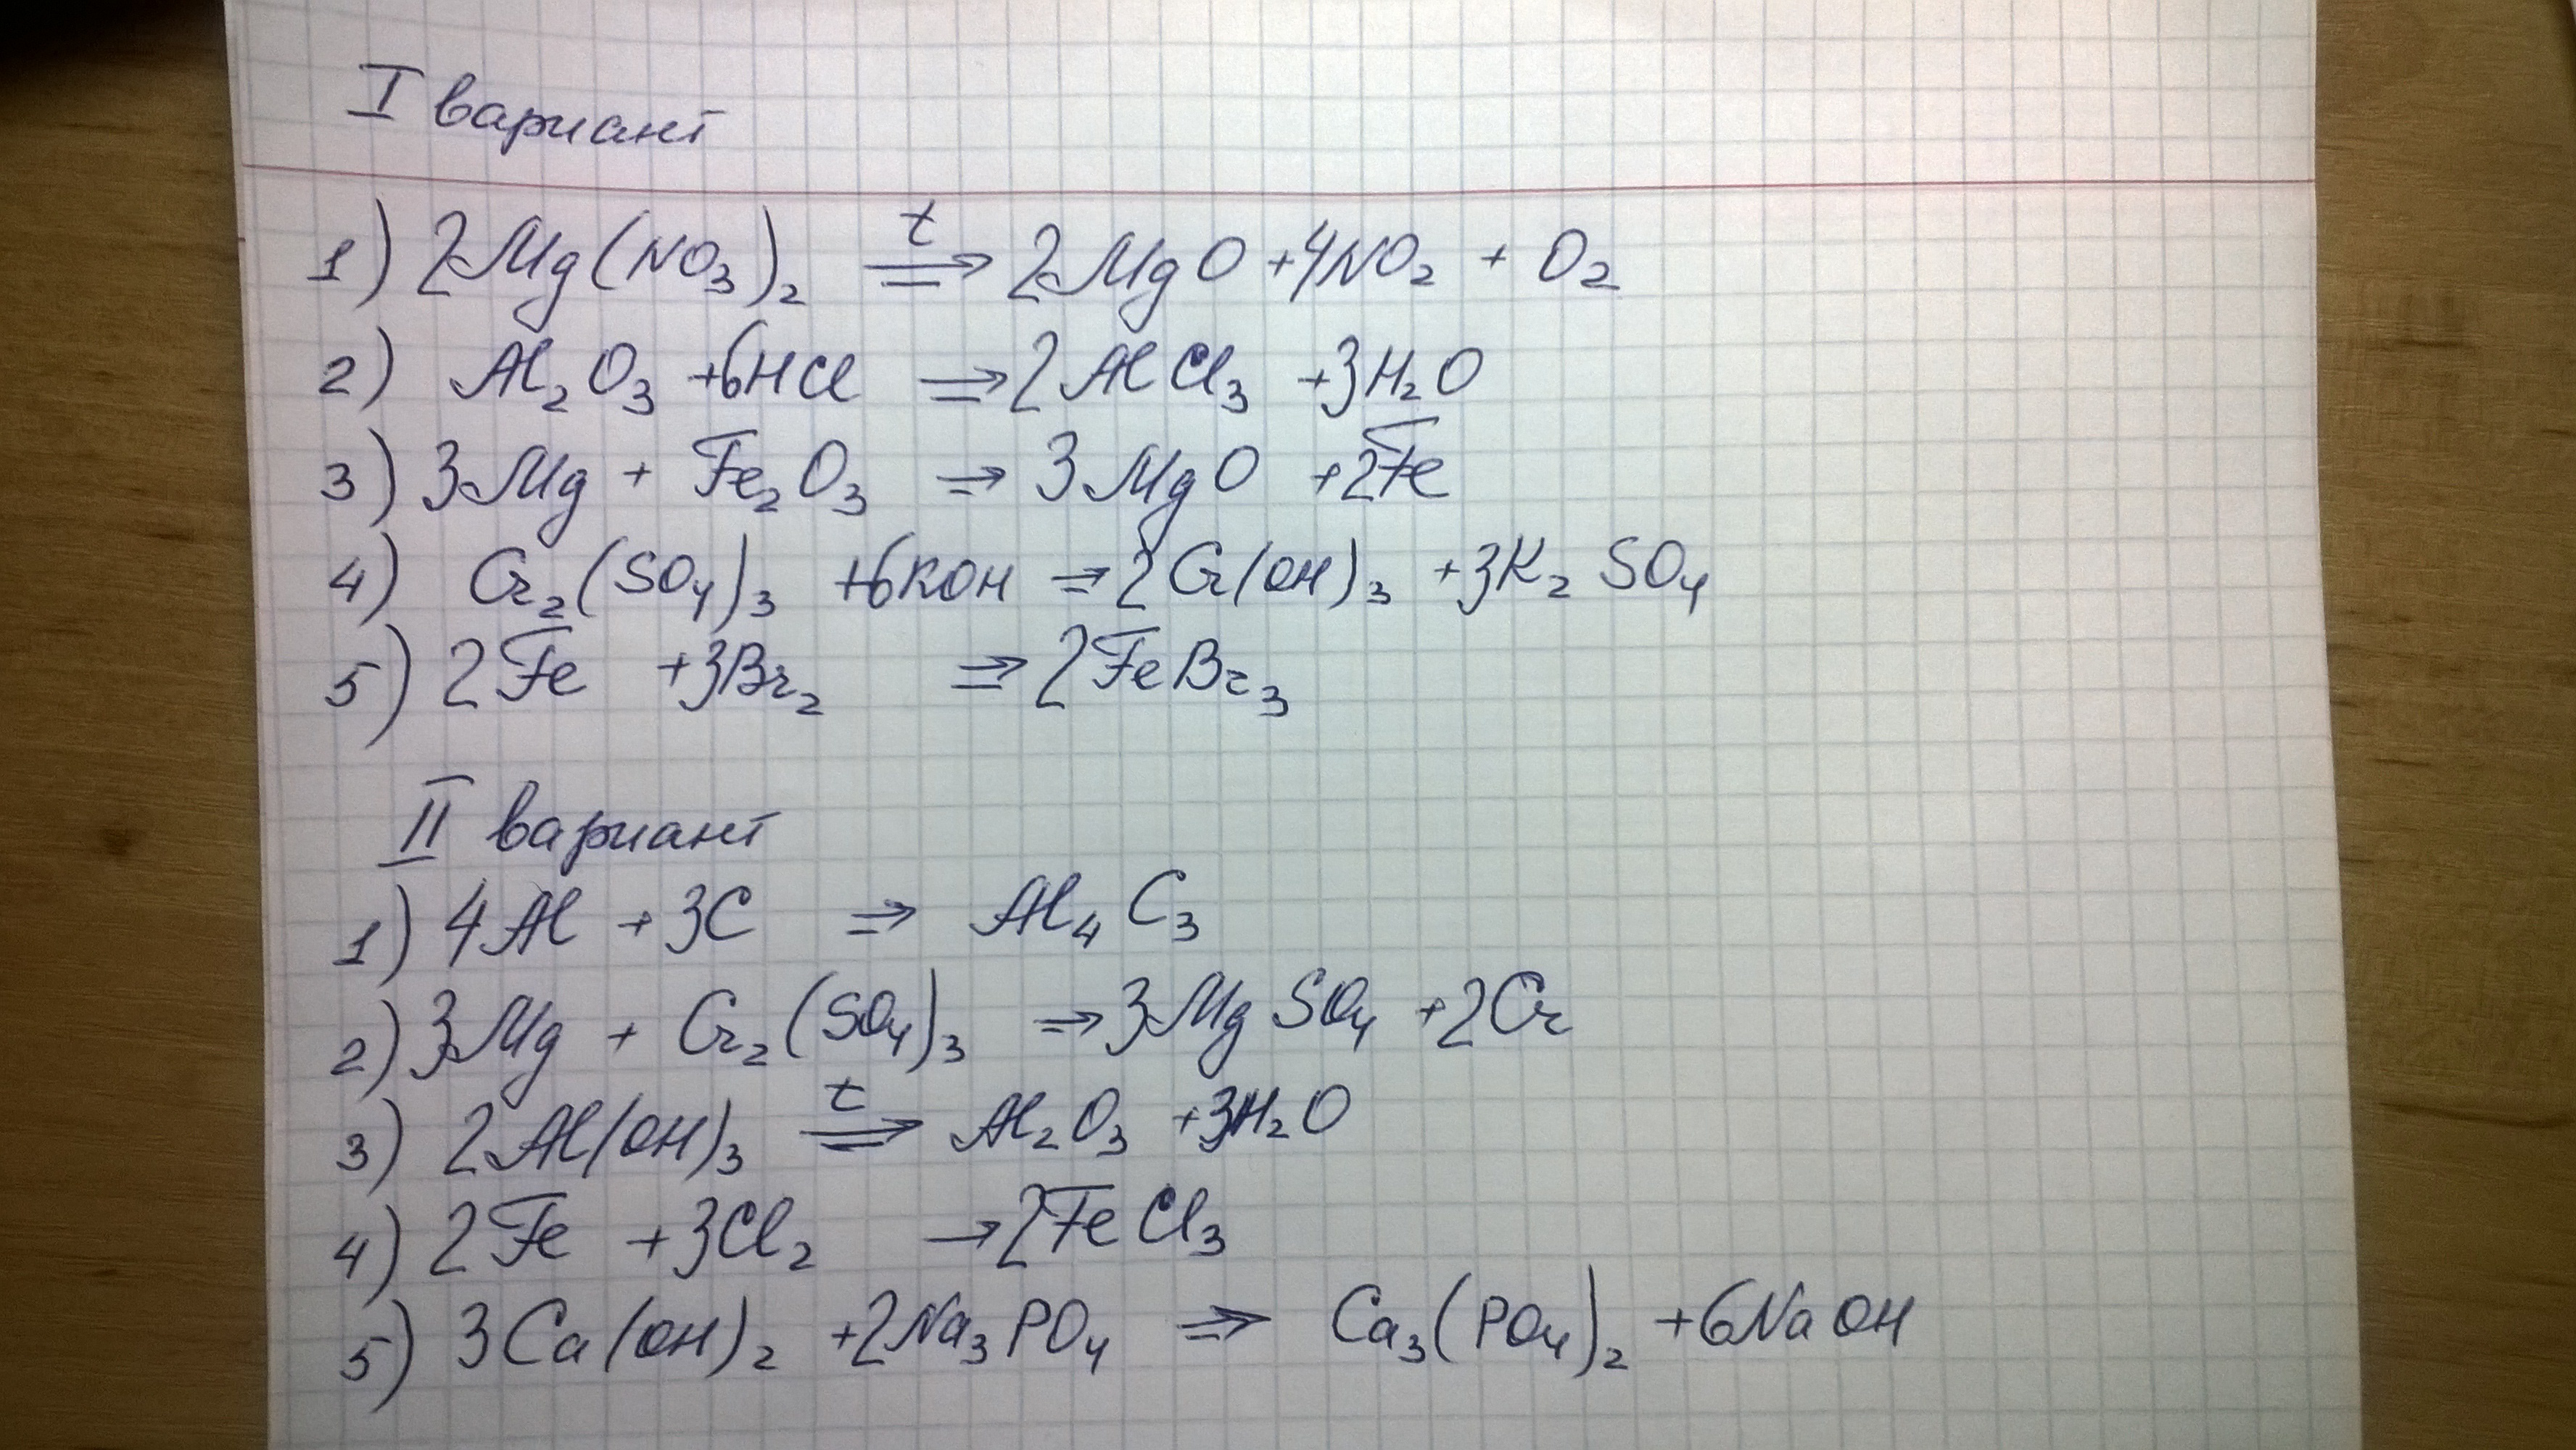 I вариант
1) 2Mg(NO₃)₂ t⇒ 2MgO +4NO₂ + O₂
2) Al₂O₃ +6HCl ⇒ 2AlCl₃ +3H₂O
3) 3Mg + Fe₂O₃ ⇒ 3MgO +2Fe
4) Cr₂(SO₄)₃ +6KOH ⇒ 2Cr(OH)₃ +3K₂SO₄
5) 2Fe +3Br₂ ⇒ 2FeBr₃
II вариант
1) 4Al +3C ⇒ Al₄C₃
2) 3Mg + Cr₂(SO₄)₃ ⇒ 3MgSO₄ +2Cr
3) 2Al(OH)₃ t⇒ Al₂O₃ +3H₂O
4) 2Fe +3Cl₂ → 2FeCl₃
5) 3Ca(OH)₂ +2Na₃PO₄ ⇒ Ca₃(PO₄)₂ +6NaOH